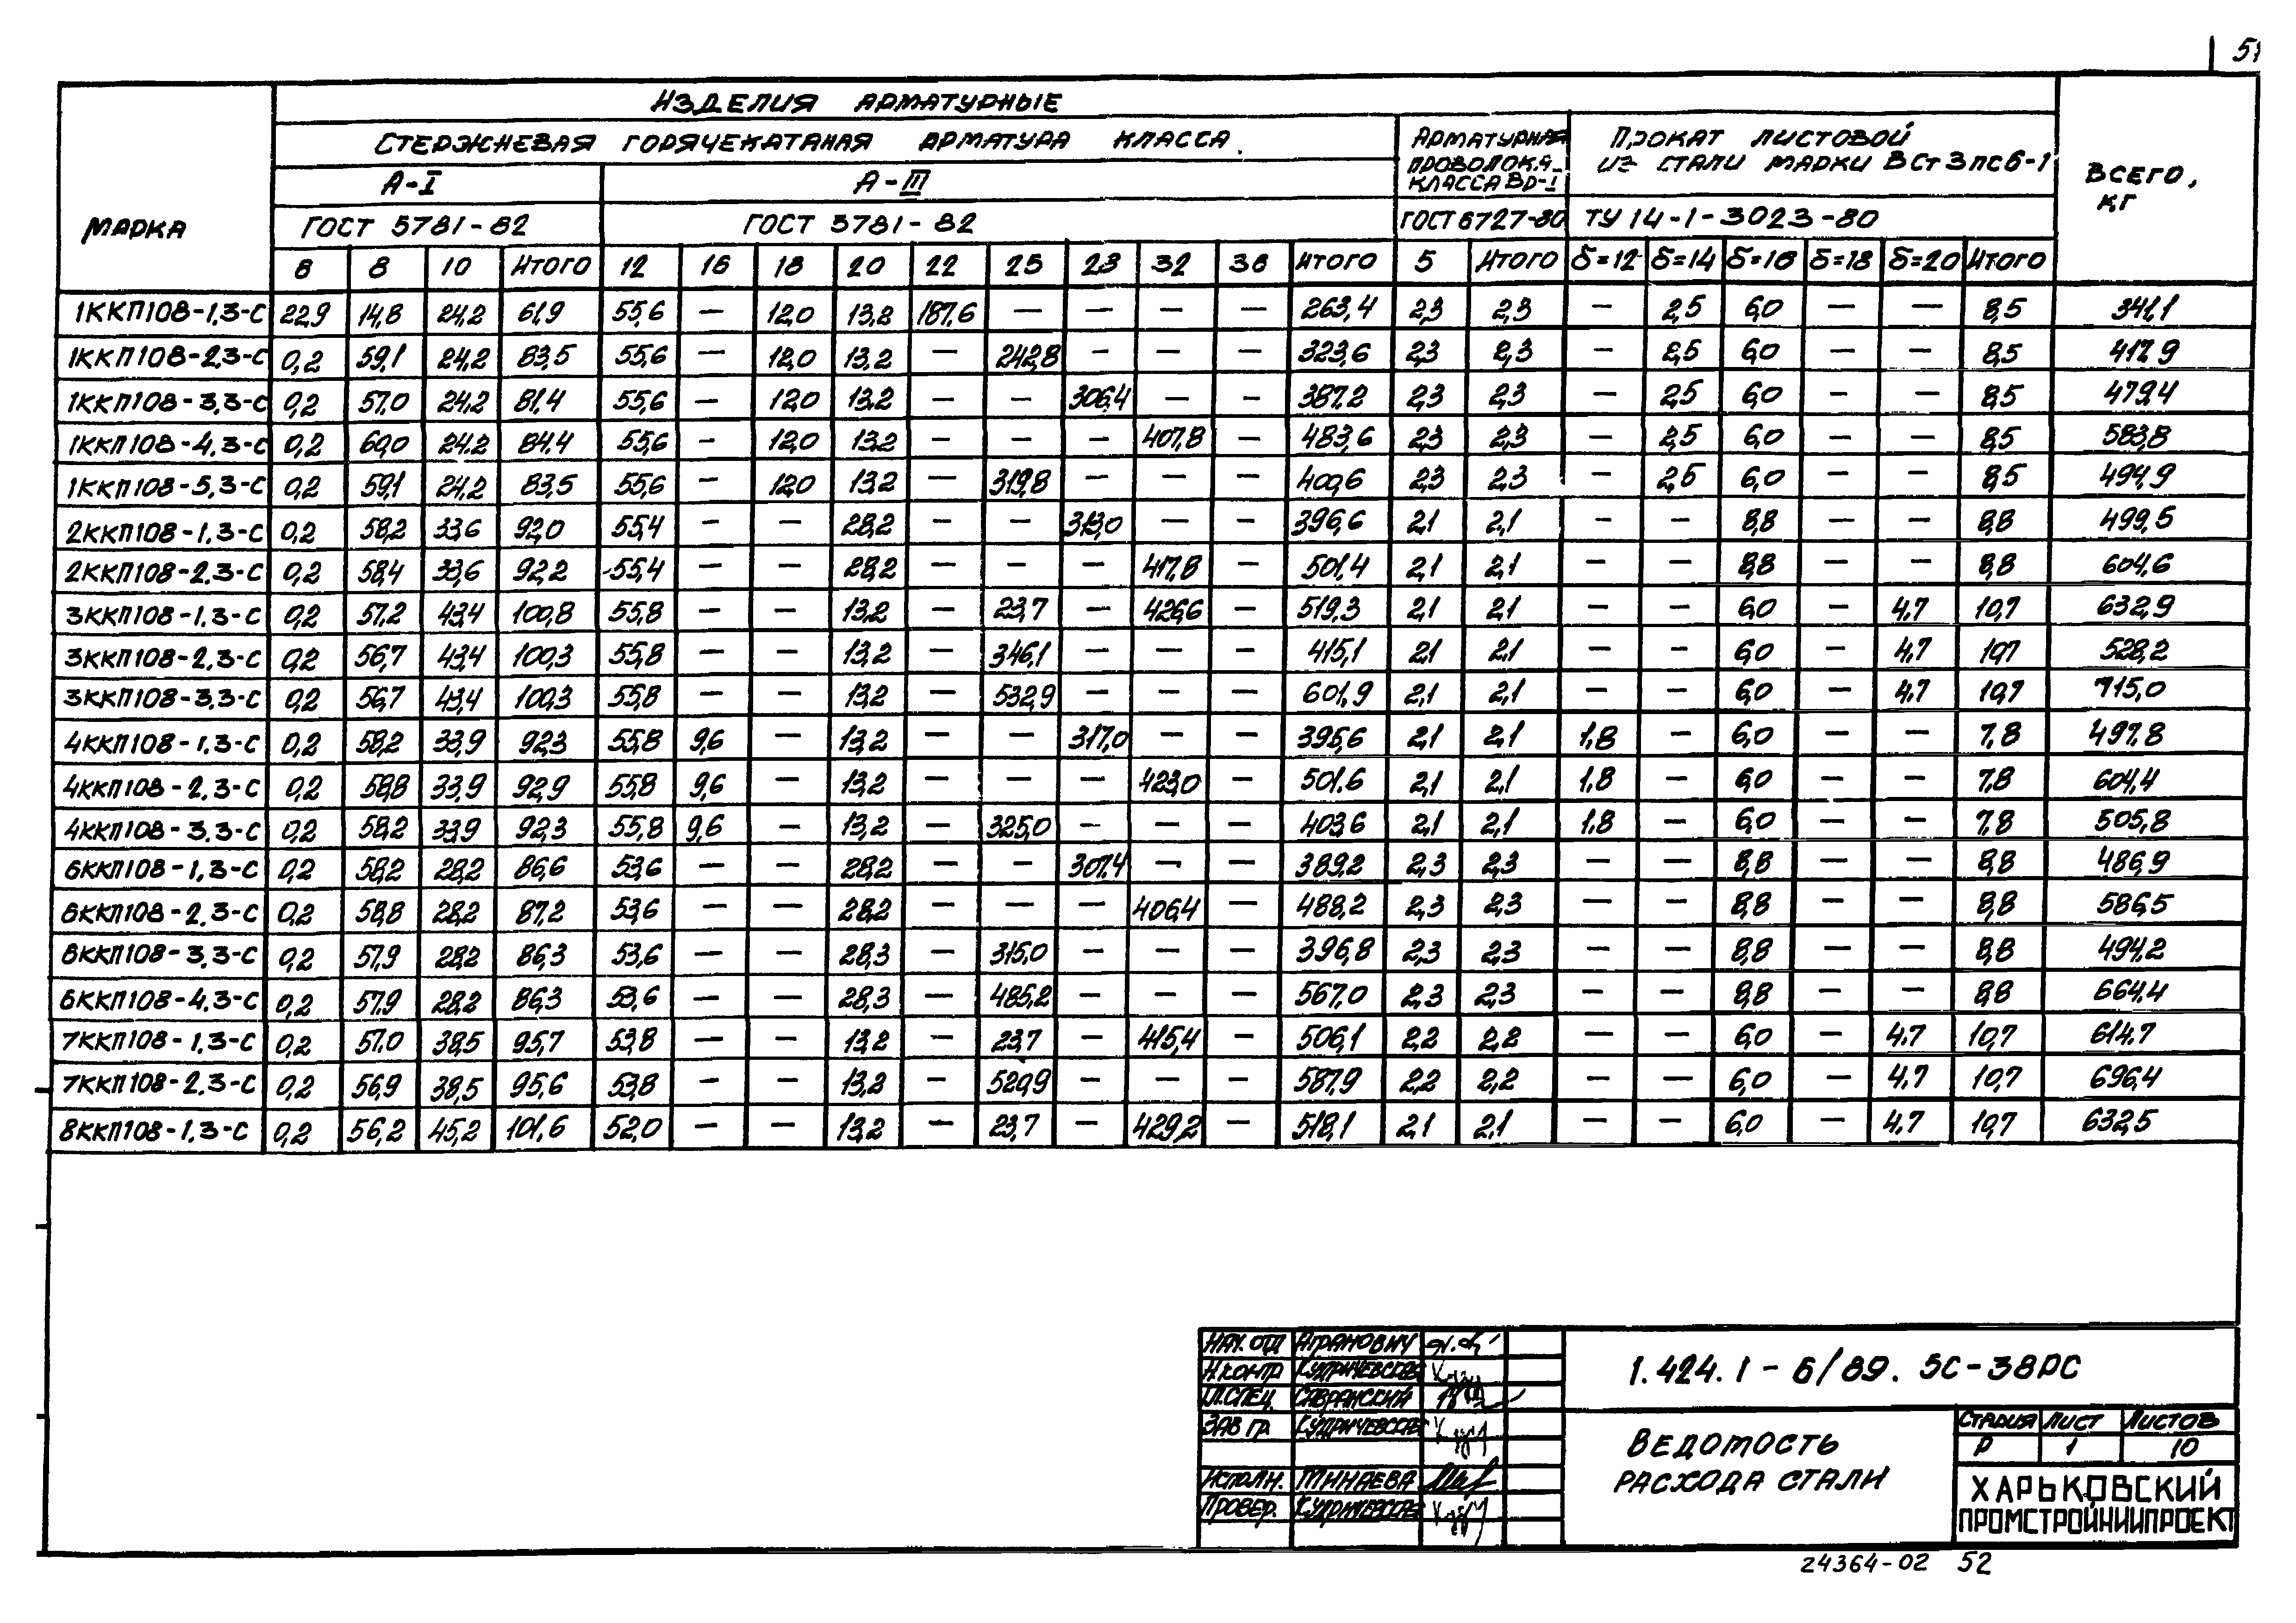 51
ИЗДЕЛИЯ АРМАТУРНЫЕ
СТЕРЖНЕВАЯ ГОРЯЧЕКАТАНАЯ АРМАТУРА КЛАССА
АРМАТУРНАЯ ПРОВОЛОКА КЛАССА Вр-I
ПРОКАТ ЛИСТОВОЙ ИЗ СТАЛИ МАРКИ ВСт3пс6-1
ВСЕГО, КГ
МАРКА
А-I
А-III
ГОСТ 5781-82
ГОСТ 5781-82
ГОСТ 6727-80
ТУ 14-1-3023-80
6 8 10 ИТОГО 12 16 18 20 22 25 28 32 36 ИТОГО 5 ИТОГО δ=12 δ=14 δ=16 δ=18 δ=20 ИТОГО
1ККП108-1.3-С 22,9 14,8 24,2 61,9 55,6 — 12,0 13,2 187,6 — — — — 263,4 2,3 2,3 — 2,5 6,0 — — 8,5 341,1
1ККП108-2.3-С 0,2 59,1 24,2 83,5 55,6 — 12,0 13,2 — 242,8 — — — 323,6 2,3 2,3 — 2,5 6,0 — — 8,5 417,9
1ККП108-3.3-С 0,2 57,0 24,2 81,4 55,6 — 12,0 13,2 — — 306,4 — — 387,2 2,3 2,3 — 2,5 6,0 — — 8,5 479,4
1ККП108-4.3-С 0,2 60,0 24,2 84,4 55,6 — 12,0 13,2 — — — 407,8 — 483,6 2,3 2,3 — 2,5 6,0 — — 8,5 583,8
1ККП108-5.3-С 0,2 59,1 24,2 83,5 55,6 — 12,0 13,2 — 319,8 — — — 400,6 2,3 2,3 — 2,5 6,0 — — 8,5 494,9
2ККП108-1.3-С 0,2 58,2 33,6 92,0 55,4 — — 28,2 — — 313,0 — — 396,6 2,1 2,1 — — 8,8 — — 8,8 499,5
2ККП108-2.3-С 0,2 58,4 33,6 92,2 55,4 — — 28,2 — — — 417,8 — 501,4 2,1 2,1 — — 8,8 — — 8,8 604,6
3ККП108-1.3-С 0,2 57,2 43,4 100,8 55,8 — — 13,2 — 23,7 — 426,6 — 519,3 2,1 2,1 — — 6,0 — 4,7 10,7 632,9
3ККП108-2.3-С 0,2 56,7 43,4 100,3 55,8 — — 13,2 — 346,1 — — — 415,1 2,1 2,1 — — 6,0 — 4,7 10,7 528,2
3ККП108-3.3-С 0,2 56,7 43,4 100,3 55,8 — — 13,2 — 532,9 — — — 601,9 2,1 2,1 — — 6,0 — 4,7 10,7 715,0
4ККП108-1.3-С 0,2 58,2 33,9 92,3 55,8 9,6 — 13,2 — — 317,0 — — 395,6 2,1 2,1 1,8 — 6,0 — — 7,8 497,8
4ККП108-2.3-С 0,2 58,8 33,9 92,9 55,8 9,6 — 13,2 — — — 423,0 — 501,6 2,1 2,1 1,8 — 6,0 — — 7,8 604,4
4ККП108-3.3-С 0,2 58,2 33,9 92,3 55,8 9,6 — 13,2 — 325,0 — — — 403,6 2,1 2,1 1,8 — 6,0 — — 7,8 505,8
6ККП108-1.3-С 0,2 58,2 28,2 86,6 53,6 — — 28,2 — — 307,4 — — 389,2 2,3 2,3 — — 8,8 — — 8,8 486,9
6ККП108-2.3-С 0,2 58,8 28,2 87,2 53,6 — — 28,2 — — — 406,4 — 488,2 2,3 2,3 — — 8,8 — — 8,8 586,5
6ККП108-3.3-С 0,2 57,9 28,2 86,3 53,6 — — 28,3 — 315,0 — — — 396,8 2,3 2,3 — — 8,8 — — 8,8 494,2
6ККП108-4.3-С 0,2 57,9 28,2 86,3 53,6 — — 28,3 — 485,2 — — — 567,0 2,3 2,3 — — 8,8 — — 8,8 664,4
7ККП108-1.3-С 0,2 57,0 38,5 95,7 53,8 — — 13,2 — 23,7 — 415,4 — 506,1 2,2 2,2 — — 6,0 — 4,7 10,7 614,7
7ККП108-2.3-С 0,2 56,9 38,5 95,6 53,8 — — 13,2 — 520,9 — — — 587,9 2,2 2,2 — — 6,0 — 4,7 10,7 696,4
8ККП108-1.3-С 0,2 56,2 45,2 101,6 52,0 — — 13,2 — 23,7 — 429,2 — 518,1 2,1 2,1 — — 6,0 — 4,7 10,7 632,5
НАЧ. ОТД АГРАНОВИЧ
Н.КОНТР
ГЛ.СПЕЦ. САВРАНСКИЙ
ЗАВ ГР.
ИСПОЛН. МИНАЕВА
ПРОВЕР.
1.424.1-6/89. 5С-38РС
ВЕДОМОСТЬ
РАСХОДА СТАЛИ
СТАДИЯ ЛИСТ ЛИСТОВ
Р 1 10
ХАРЬКОВСКИЙ
ПРОМСТРОЙНИИПРОЕКТ
24364-02 52